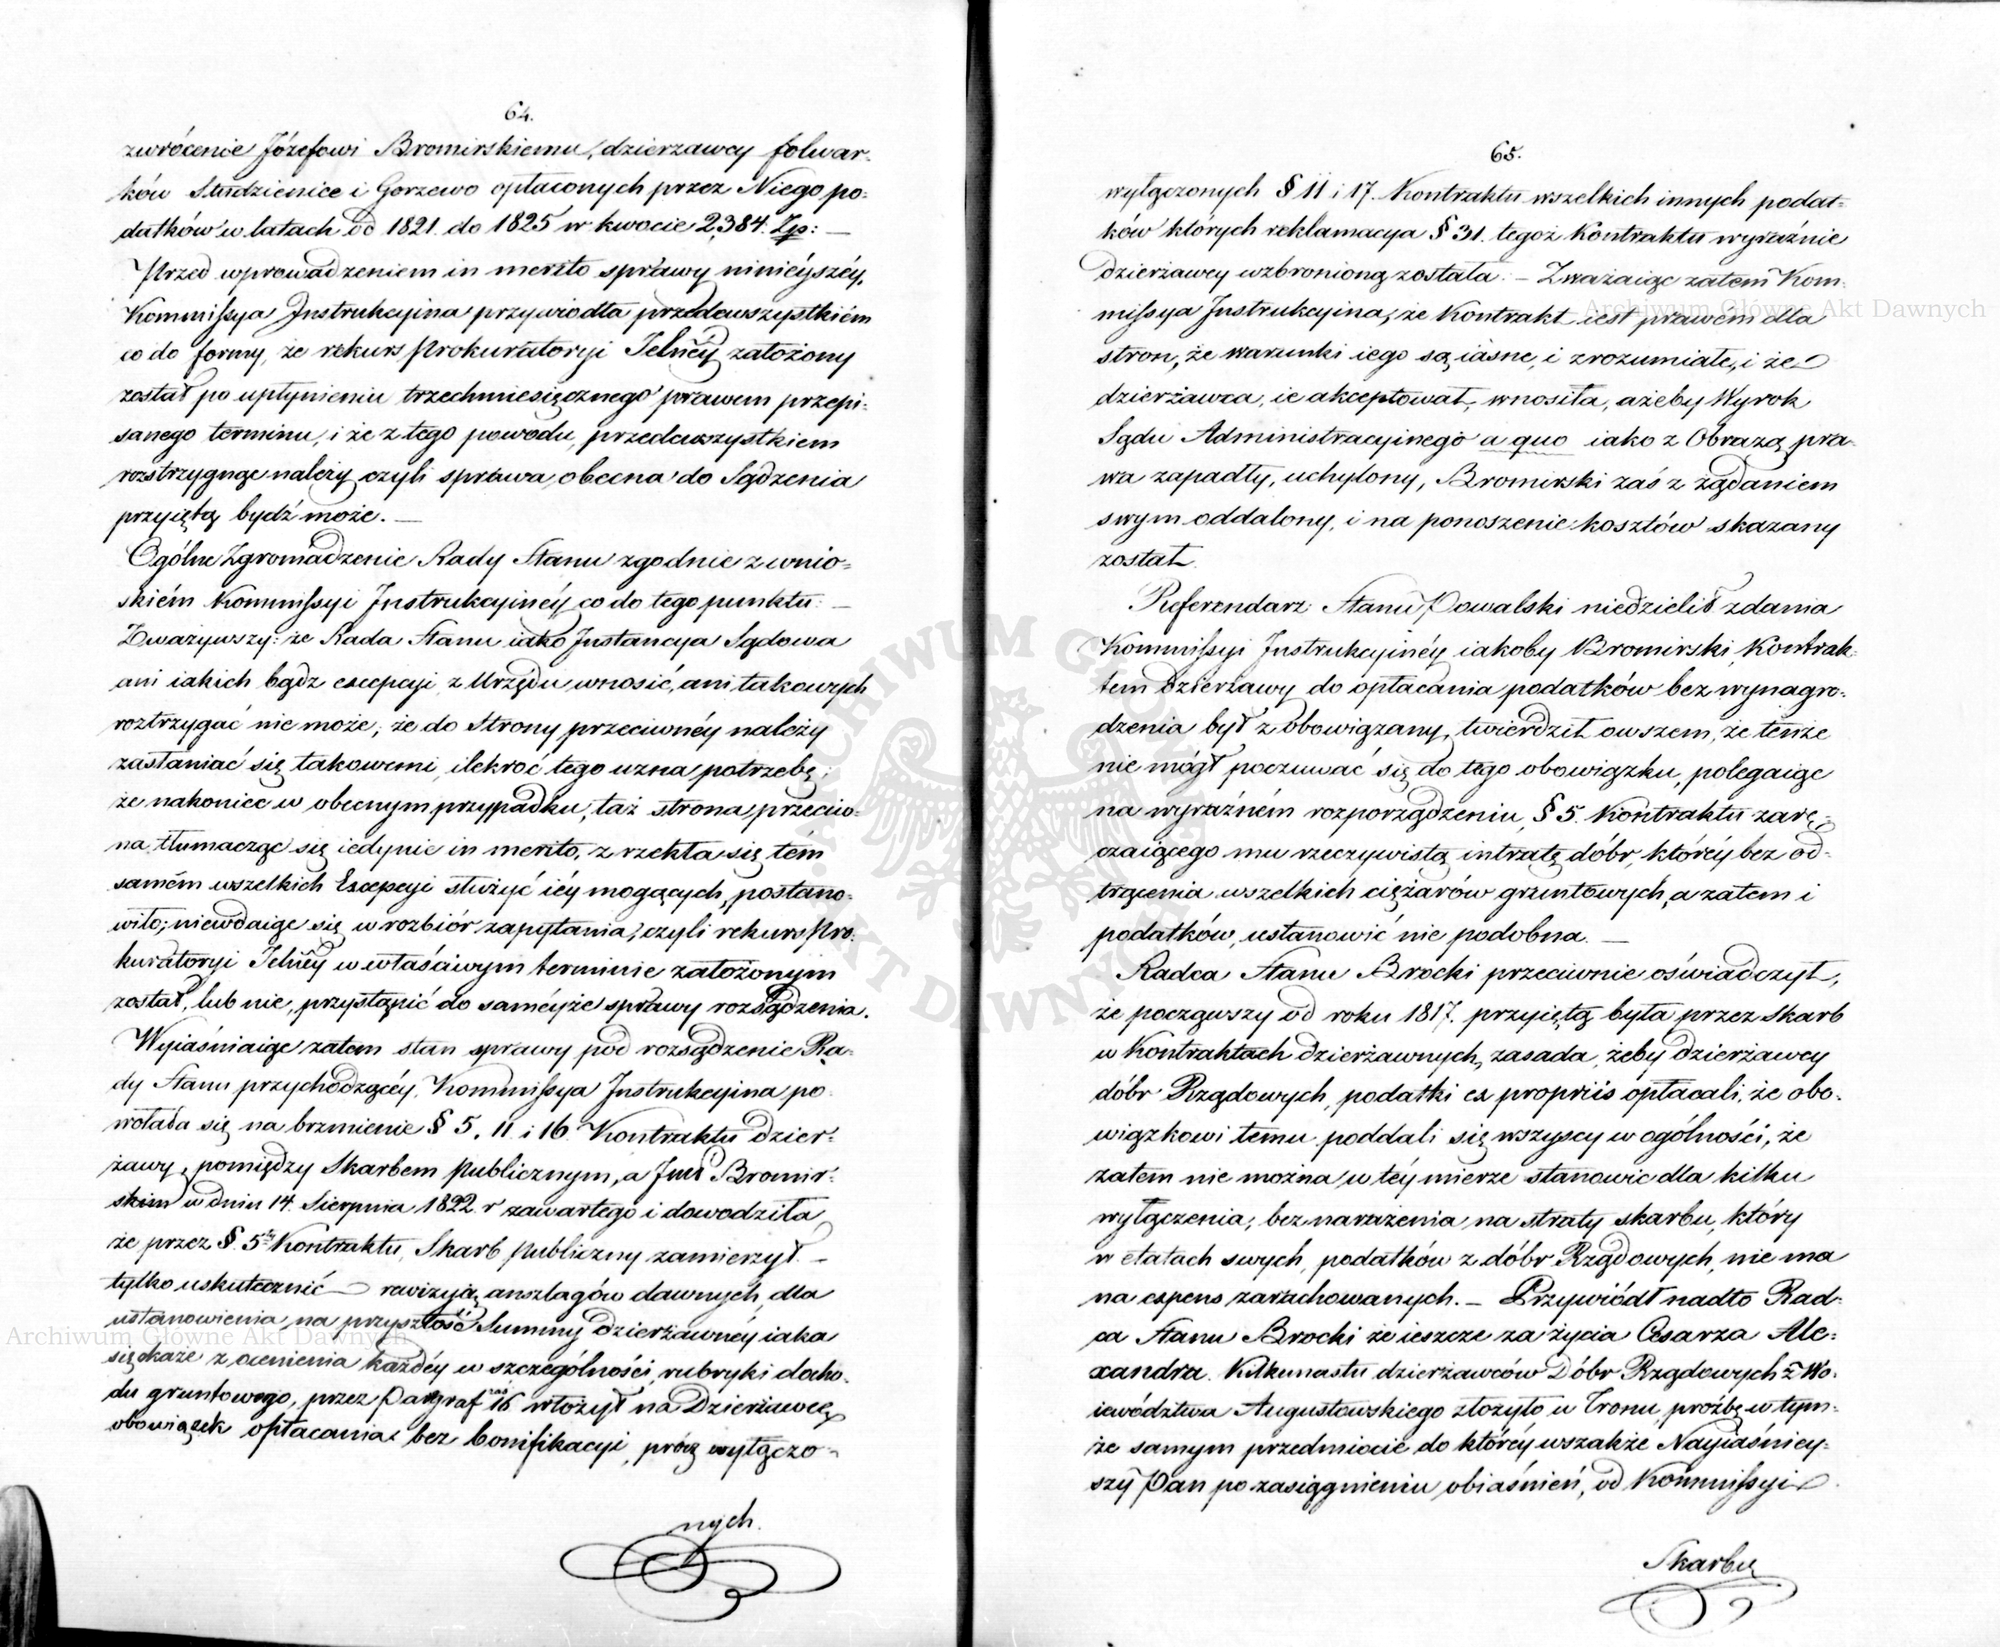 64.
zwrócenie Józefowi Bromirskiemu, dzierzawcy folwar-
ków Studzienice i Gorzewo opłaconych przez Niego po-
datków w latach od 1821. do 1825 w kwocie 2,384. Zp: —
Przed wprowadzeniem in merito sprawy ninieyszéy,
Kommissya Instrukcyina przywiodła przedewszystkiém
co do formy, że rekurs Prokuratoryi Jelnéy założony
został po upłynieniu trzechmiesięcznego prawem przepi-
sanego terminu, i że z tego powodu, przedewszystkiem
rozstrzygnąc należy czyli sprawa obecna do Sądzenia
przyiętą bydź może. —
Ogólne Zgromadzenie Rady Stanu zgodnie z wnio-
skiém Kommissyi Instrukcyinéy co do tego punktu: —
Zważywszy: że Rada Stanu iako Instancya Sądowa
ani iakich bądz excepcyi z Urzędu wnosić, ani takowych
roztrzygać nie może; że do Strony przeciwnéy należy
zasłaniać się takowemi, ilekroć tego uzna potrzebę;
że nakoniec w obecnym przypadku, taż strona przeciw-
na tłumacząc się iedynie in merito, zrzekła się tém
samém wszelkich Excepcyi służyć iéy mogących, postano-
wiło; niewdaiąc się w rozbiór zapytania, czyli rekurs Pro-
kuratoryi Jelnéy w właściwym terminie założonym
został, lub nie, przystąpić do saméyże sprawy rozsądzenia.
Wyiaśniaiąc zatem stan sprawy pod rozsądzenie Ra-
dy Stanu przychodzącéy, Kommissya Instrukcyina po-
wołała się na brzmienie § 5, 11 i 16 Kontraktu dzier-
żawy, pomiędzy Skarbem publicznym, a Bromir-
skim w dniu 14. Sierpnia 1822. r zawartego i dowodziła
że przez § 5ty Kontraktu, Skarb publiczny zamierzył —
tylko uskutecznić — rewizyią anszlagów dawnych, dla
ustanowienia na przyszłość Summy dzierżawnéy iaka
się okaże z ocenienia każdéy w szczególności, rubryki docho-
du gruntowego, przez Paragraf zaś 16 włożył na Dzierżawcę
obowiązek opłacania bez bonifikacyi, prócz wyłączo-
nych.
65.
wyłączonych § 11 i 17. Kontraktu wszelkich innych podat-
ków których reklamacya § 31. tegoż Kontraktu wyraźnie
dzierżawcy wzbronioną została. — Zważaiąc zatem Kom-
missya Instrukcyina, że Kontrakt iest prawem dla
stron, że warunki iego są iasne, i zrozumiałe, i że
dzierżawca, ie akceptował, wnosiła, ażeby Wyrok
Sądu Administracyinego a quo iako z Obrazą pra-
wa zapadły, uchylony, Bromirski zaś z żądaniem
swym oddalony, i na ponoszenie kosztów skazany
został.
Referendarz Stanu Powalski niedzielił zdania
Kommissyi Instrukcyinéy iakoby Bromirski, Kontrak-
tem dzierżawy do opłacania podatków bez wynagro-
dzenia był zobowiązany, twierdził owszem, że tenże
nie mógł poczuwać się do tego obowiązku, polegaiąc
na wyraźném rozporządzeniu, § 5. Kontraktu zarę-
czaiącego mu rzeczywistą intratę dóbr, któréy bez od-
trącenia wszelkich ciężarów gruntowych, a zatem i
podatków, ustanowić nie podobna. —
Radca Stanu Brocki przeciwnie oświadczył,
że począwszy od roku 1817. przyiętą była przez Skarb
w Kontraktach dzierżawnych, zasada, żeby dzierżawcy
dóbr Rządowych, podatki ex propriis opłacali, że obo-
wiązkowi temu poddali się wszyscy w ogólności, że
zatem nie można w téy mierze stanowic dla kilku
wyłączenia, bez narażenia na straty skarbu, który
w etatach swych, podatków z dóbr Rządowych, nie ma
na expens zarachowanych. — Przywiódł nadto Rad-
ca Stanu Brocki że ieszcze za życia Cesarza Ale-
xandra. Kilkunastu dzierżawców Dóbr Rządowych z Wo-
iewództwa Augustowskiego złożyło u Tronu, prożbę w tym-
że samym przedmiocie do któréy wszakże Nayiaśniey-
szy Pan po zasiągnieniu obiaśnień, od Kommissyi
Skarbu
Archiwum Główne Akt Dawnych
Archiwum Główne Akt Dawnych
ARCHIWUM GŁÓWNE AKT DAWNYCH